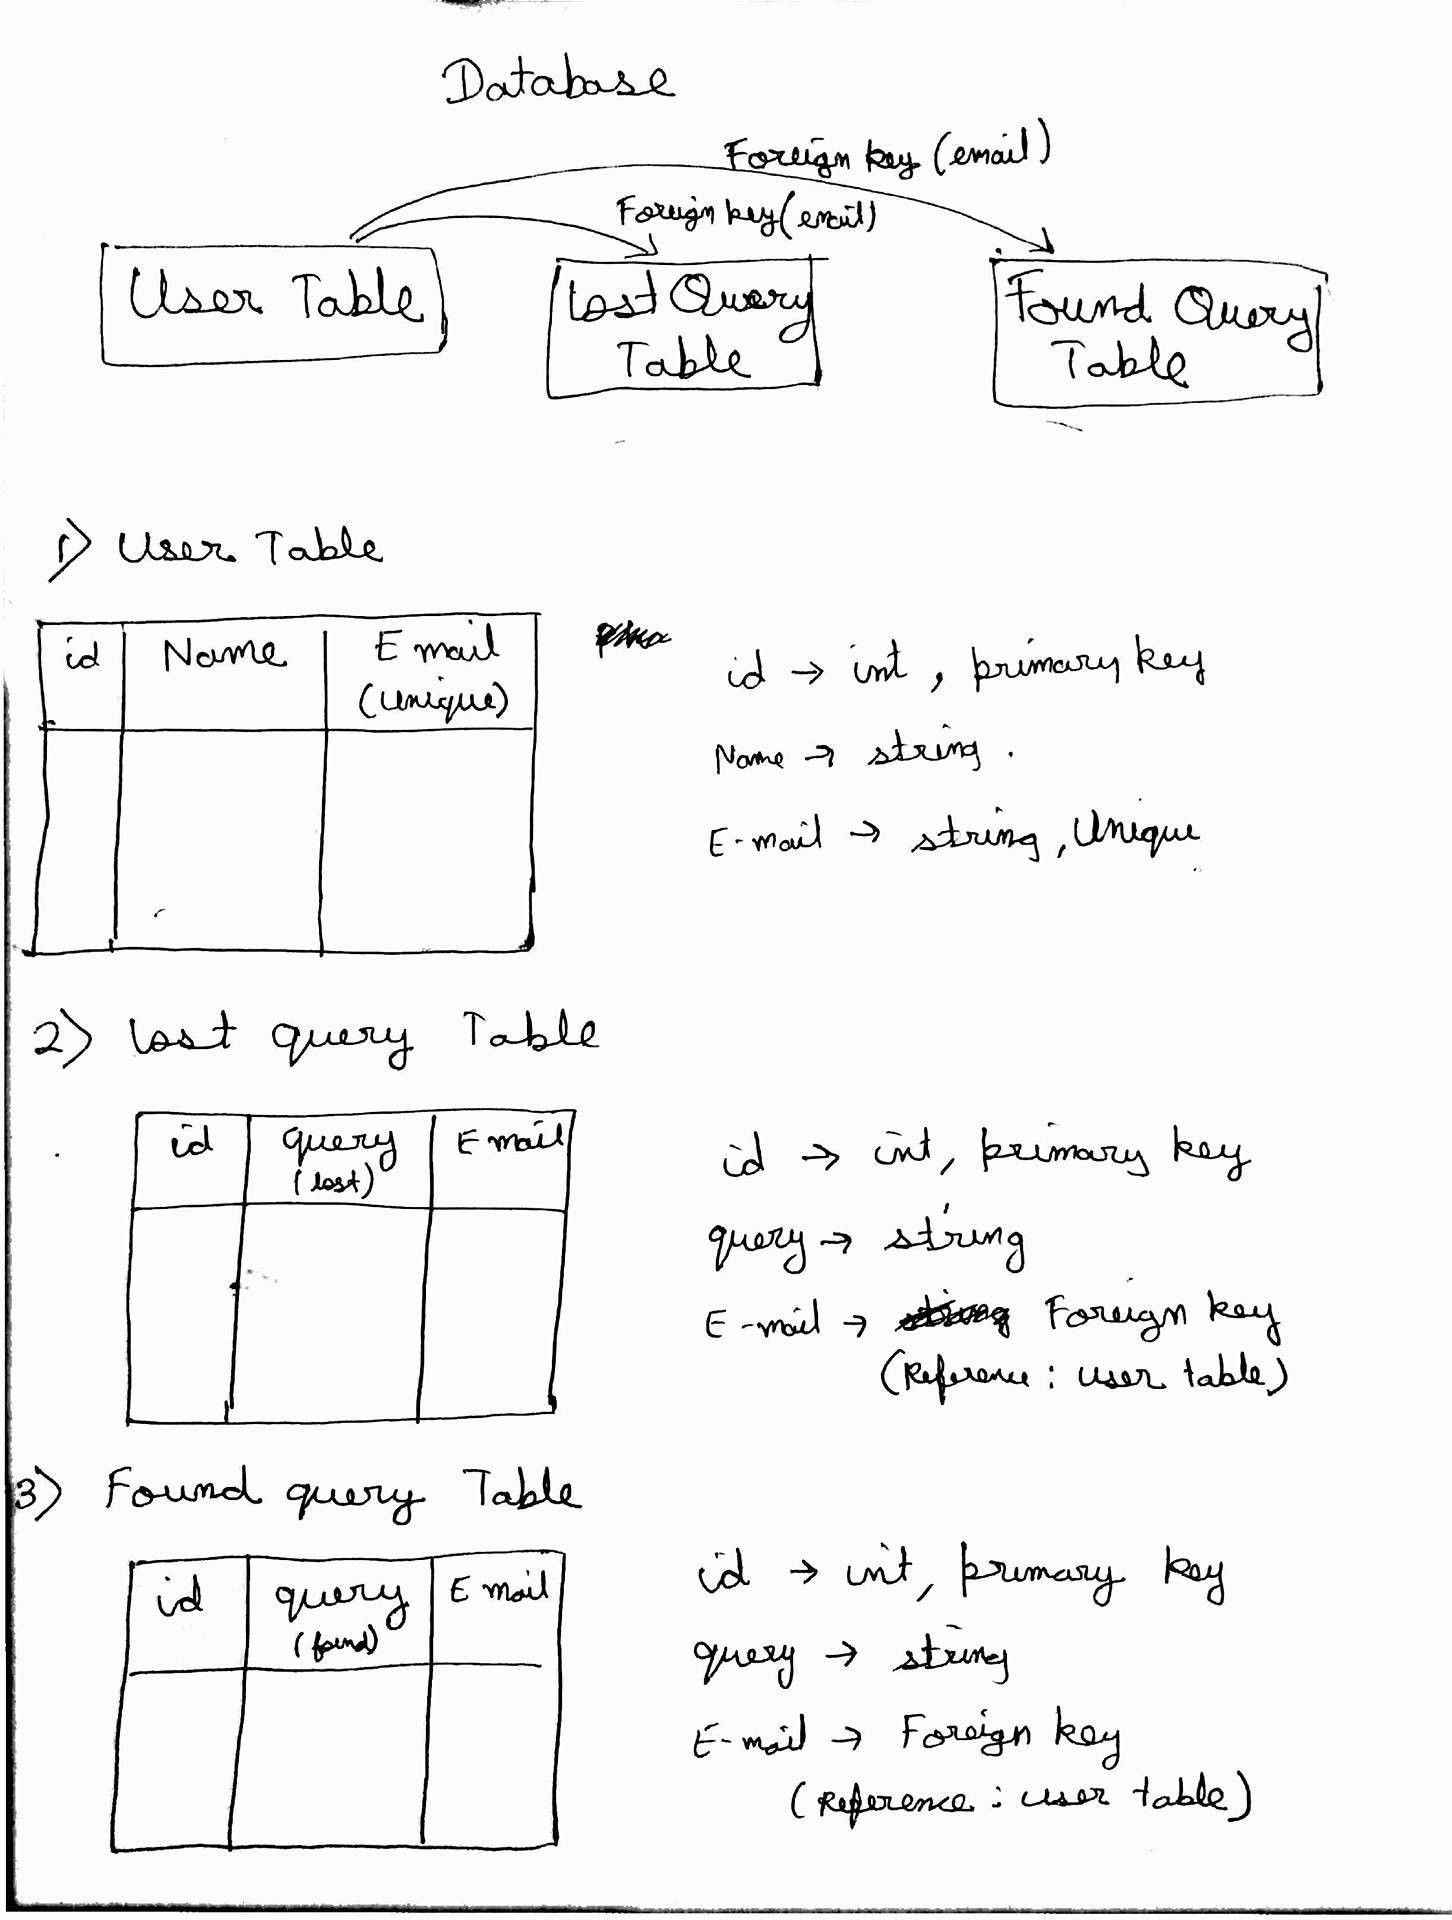 Database
Foreign key (email)
Foreign key (email)
User Table
Lost Query
Table
Found Query
Table
1) User Table
id Name Email
(Unique)
id → int, primary key
Name → string.
E-mail → string, Unique
2) Lost query Table
id query Email
(lost)
id → int, primary key
query → string
E-mail → string Foreign key
(Reference: user table)
3) Found query Table
id query Email
(found)
id → int, primary key
query → string
E-mail → Foreign key
(Reference: user table)